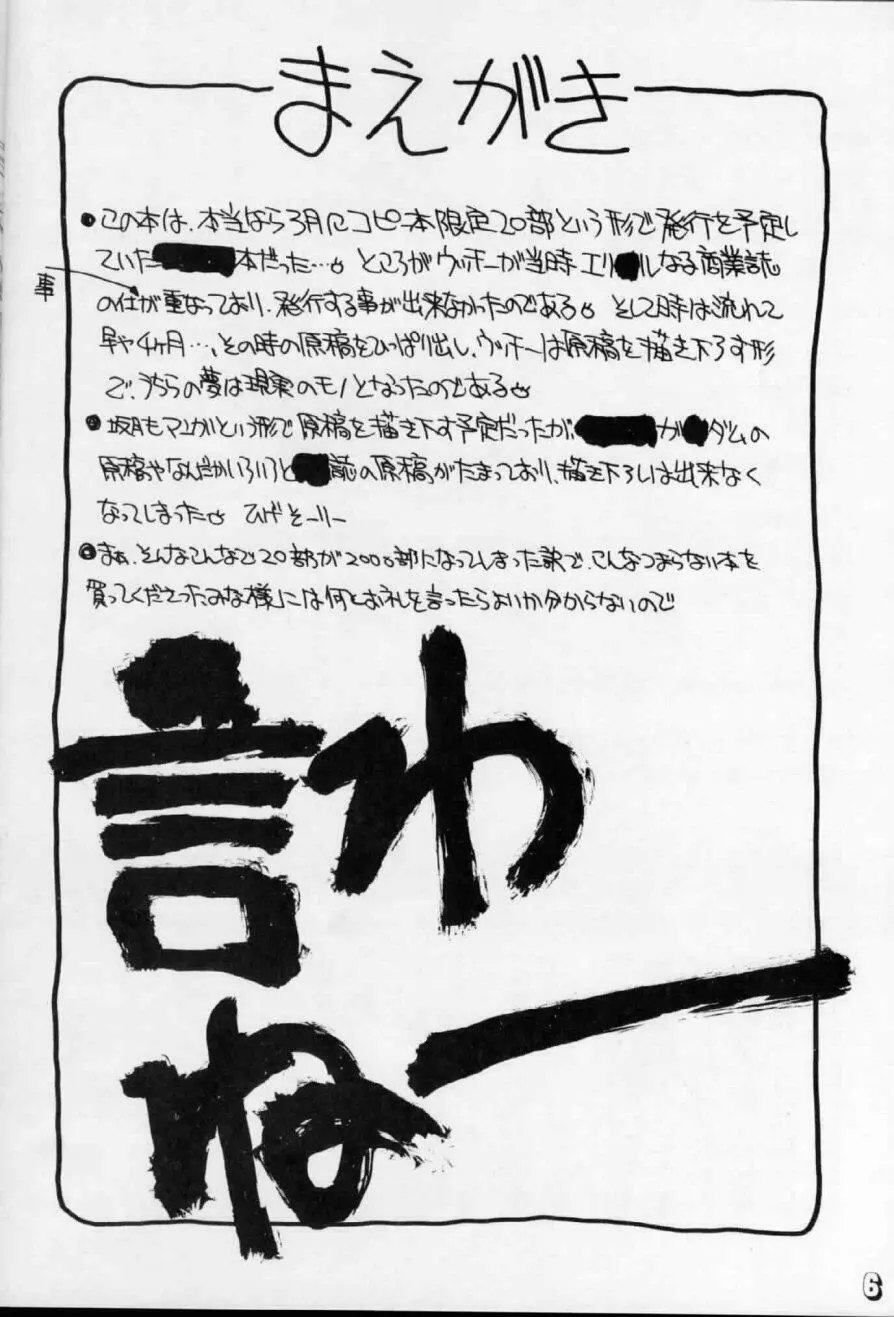 まえがき
●この本は、本当なら3月にコピー本限定20部という形で発行を予定し
ていた本だった…。ところがウッキーが当時エリ●ルなる商業誌
事
の仕が重なっており、発行する事が出来なかったのである。そして時は流れて
早や4ヶ月…、その時の原稿をひっぱり出し、ウッキーは原稿を描き下ろす形
で、うちらの夢は現実のモノとなったのである。
●坂月もマンガという形で原稿を描き下す予定だったが、ガ●ダムの
原稿やなんだかいろいろと誌の原稿がたまっており、描き下ろしは出来なく
なってしまった。ひげそーりー
●まぁ、そんなこんなで20部が2000部になってしまった訳で、こんなつまらない本を
買ってくださったみな様には何とお礼を言ったらよいか分からないので
言わ
ねー
6